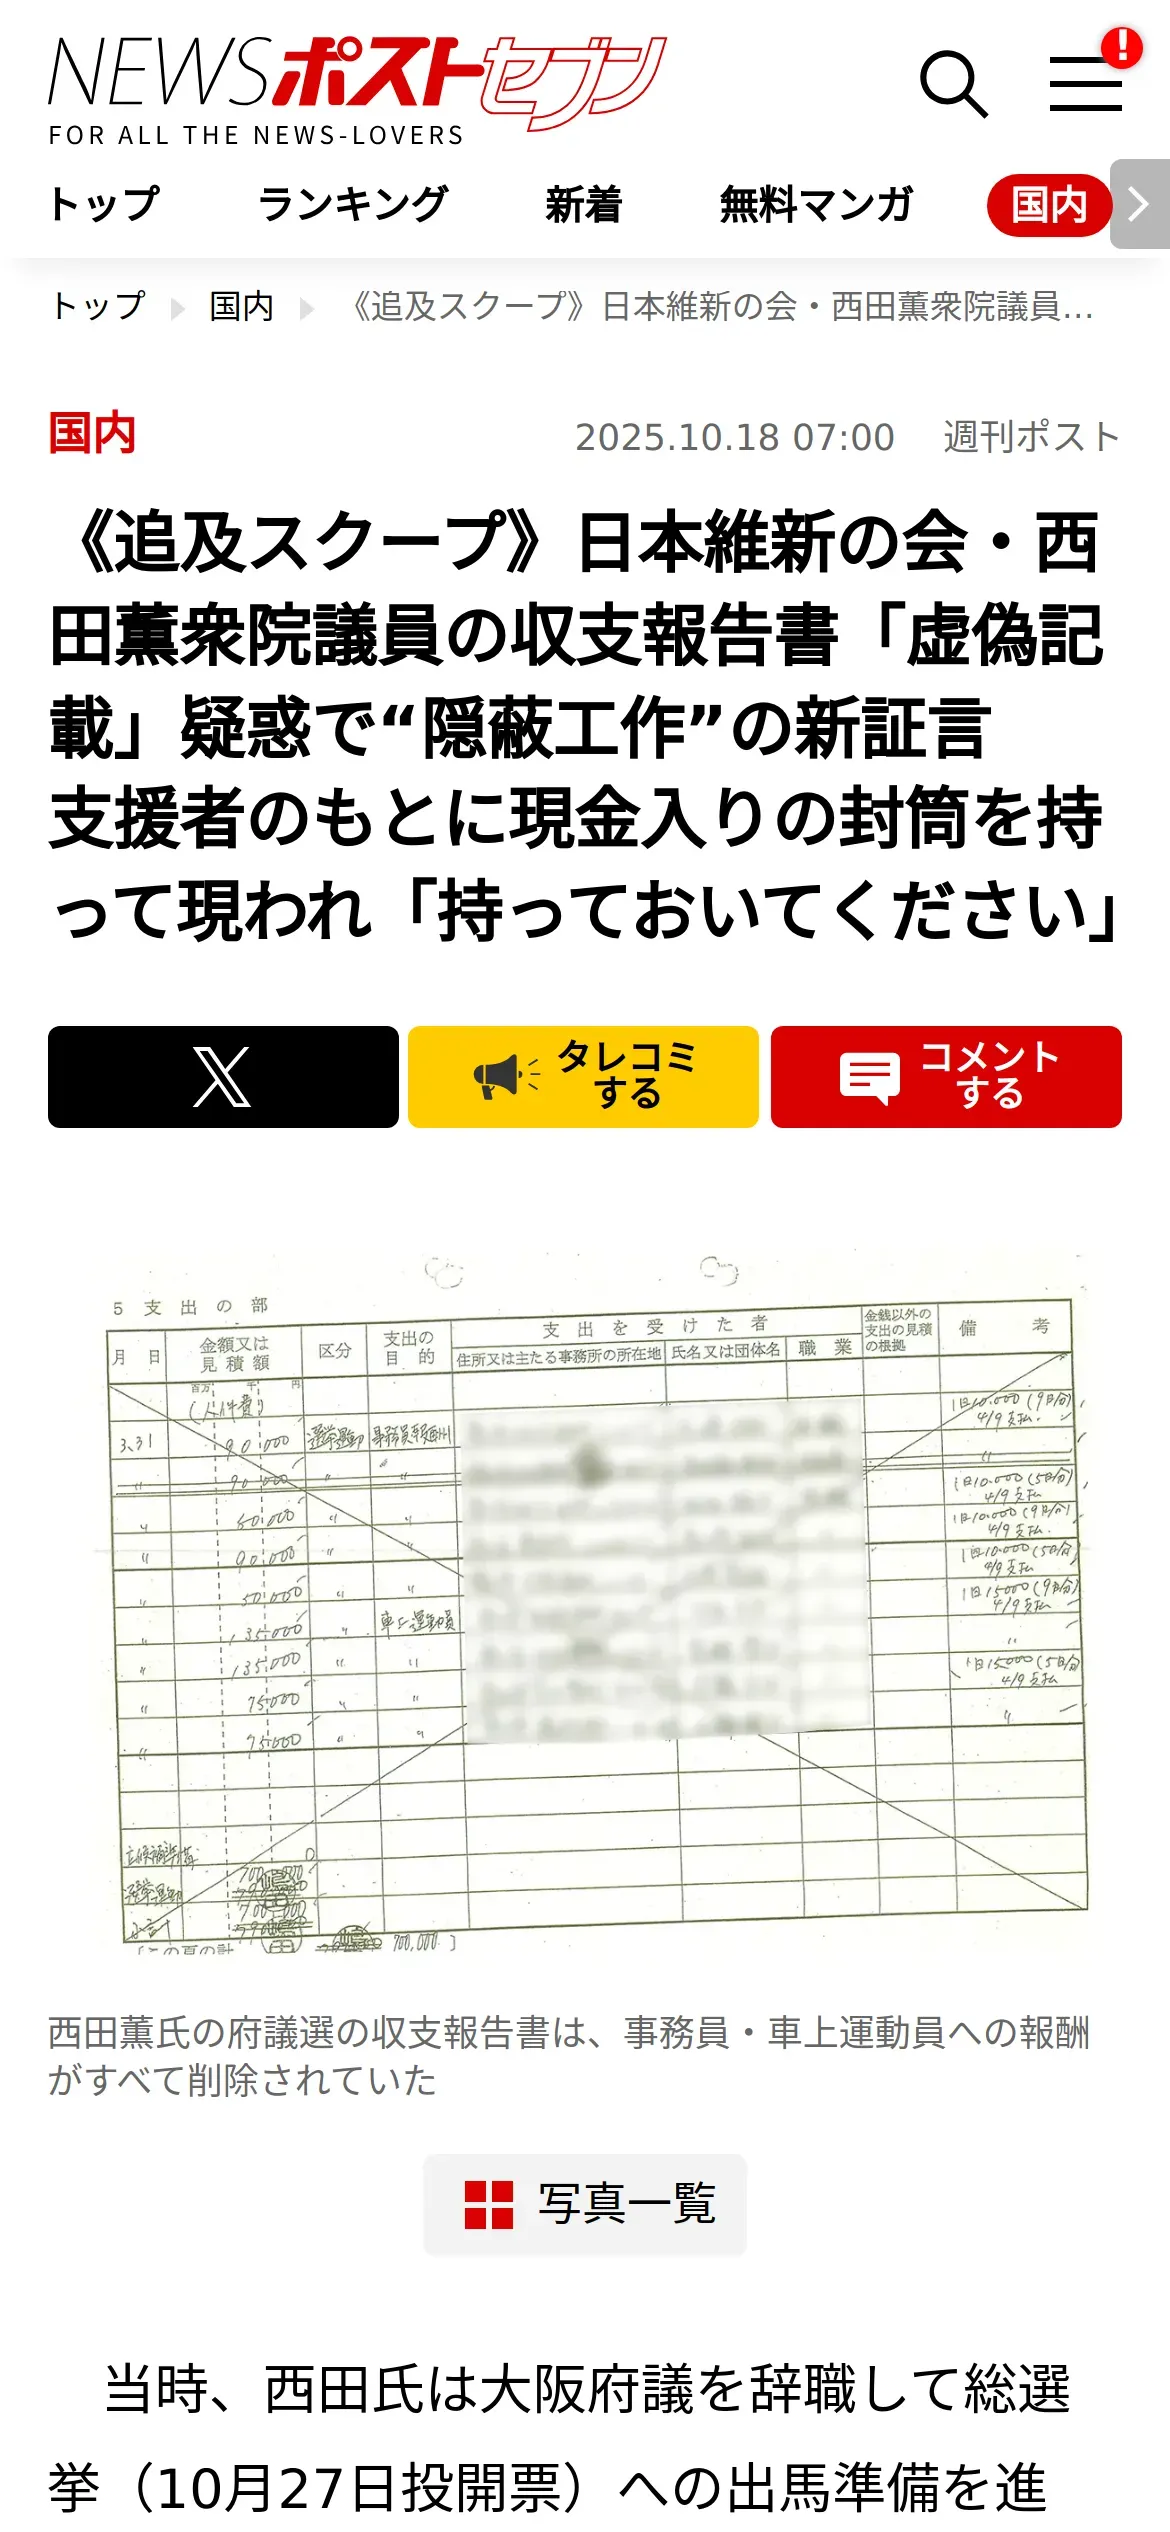 NEWSポストセブン
FOR ALL THE NEWS-LOVERS
トップ ランキング 新着 無料マンガ 国内
トップ 国内 《追及スクープ》日本維新の会・西田薫衆院議員…
国内 2025.10.18 07:00 週刊ポスト
《追及スクープ》日本維新の会・西
田薫衆院議員の収支報告書「虚偽記
載」疑惑で“隠蔽工作”の新証言
支援者のもとに現金入りの封筒を持
って現われ「持っておいてください」
タレコミ
する
コメント
する
5 支出の部
月 日 金額又は見積額 区分 支出の目的 支出を受けた者 金銭以外の支出の見積の根拠 備考
住所又は主たる事務所の所在地 氏名又は団体名 職業
百万 千 円
(人件費) 1日10,000 (9日分) 4/9支払.
3.31 90,000 選挙運動 事務員報酬
〃 90,000 〃 〃 〃
〃 50,000 〃 〃 1日10,000 (5日分) 4/9支払
〃 90,000 〃 〃 1日10,000 (9日分) 4/9支払.
〃 50,000 〃 〃 1日10,000 (5日分) 4/9支払
〃 135,000 〃 車上運動員 1日15,000 (9日分) 4/9支払
〃 135,000 〃 〃 〃
〃 75,000 〃 〃 1日15,000 (5日分) 4/9支払
〃 75,000 〃 〃 〃
立候補準備 0
選挙運動 700,000
小計 700,000
(この頁の計 700,000 )
西田薫氏の府議選の収支報告書は、事務員・車上運動員への報酬
がすべて削除されていた
写真一覧
当時、西田氏は大阪府議を辞職して総選
挙（10月27日投開票）への出馬準備を進